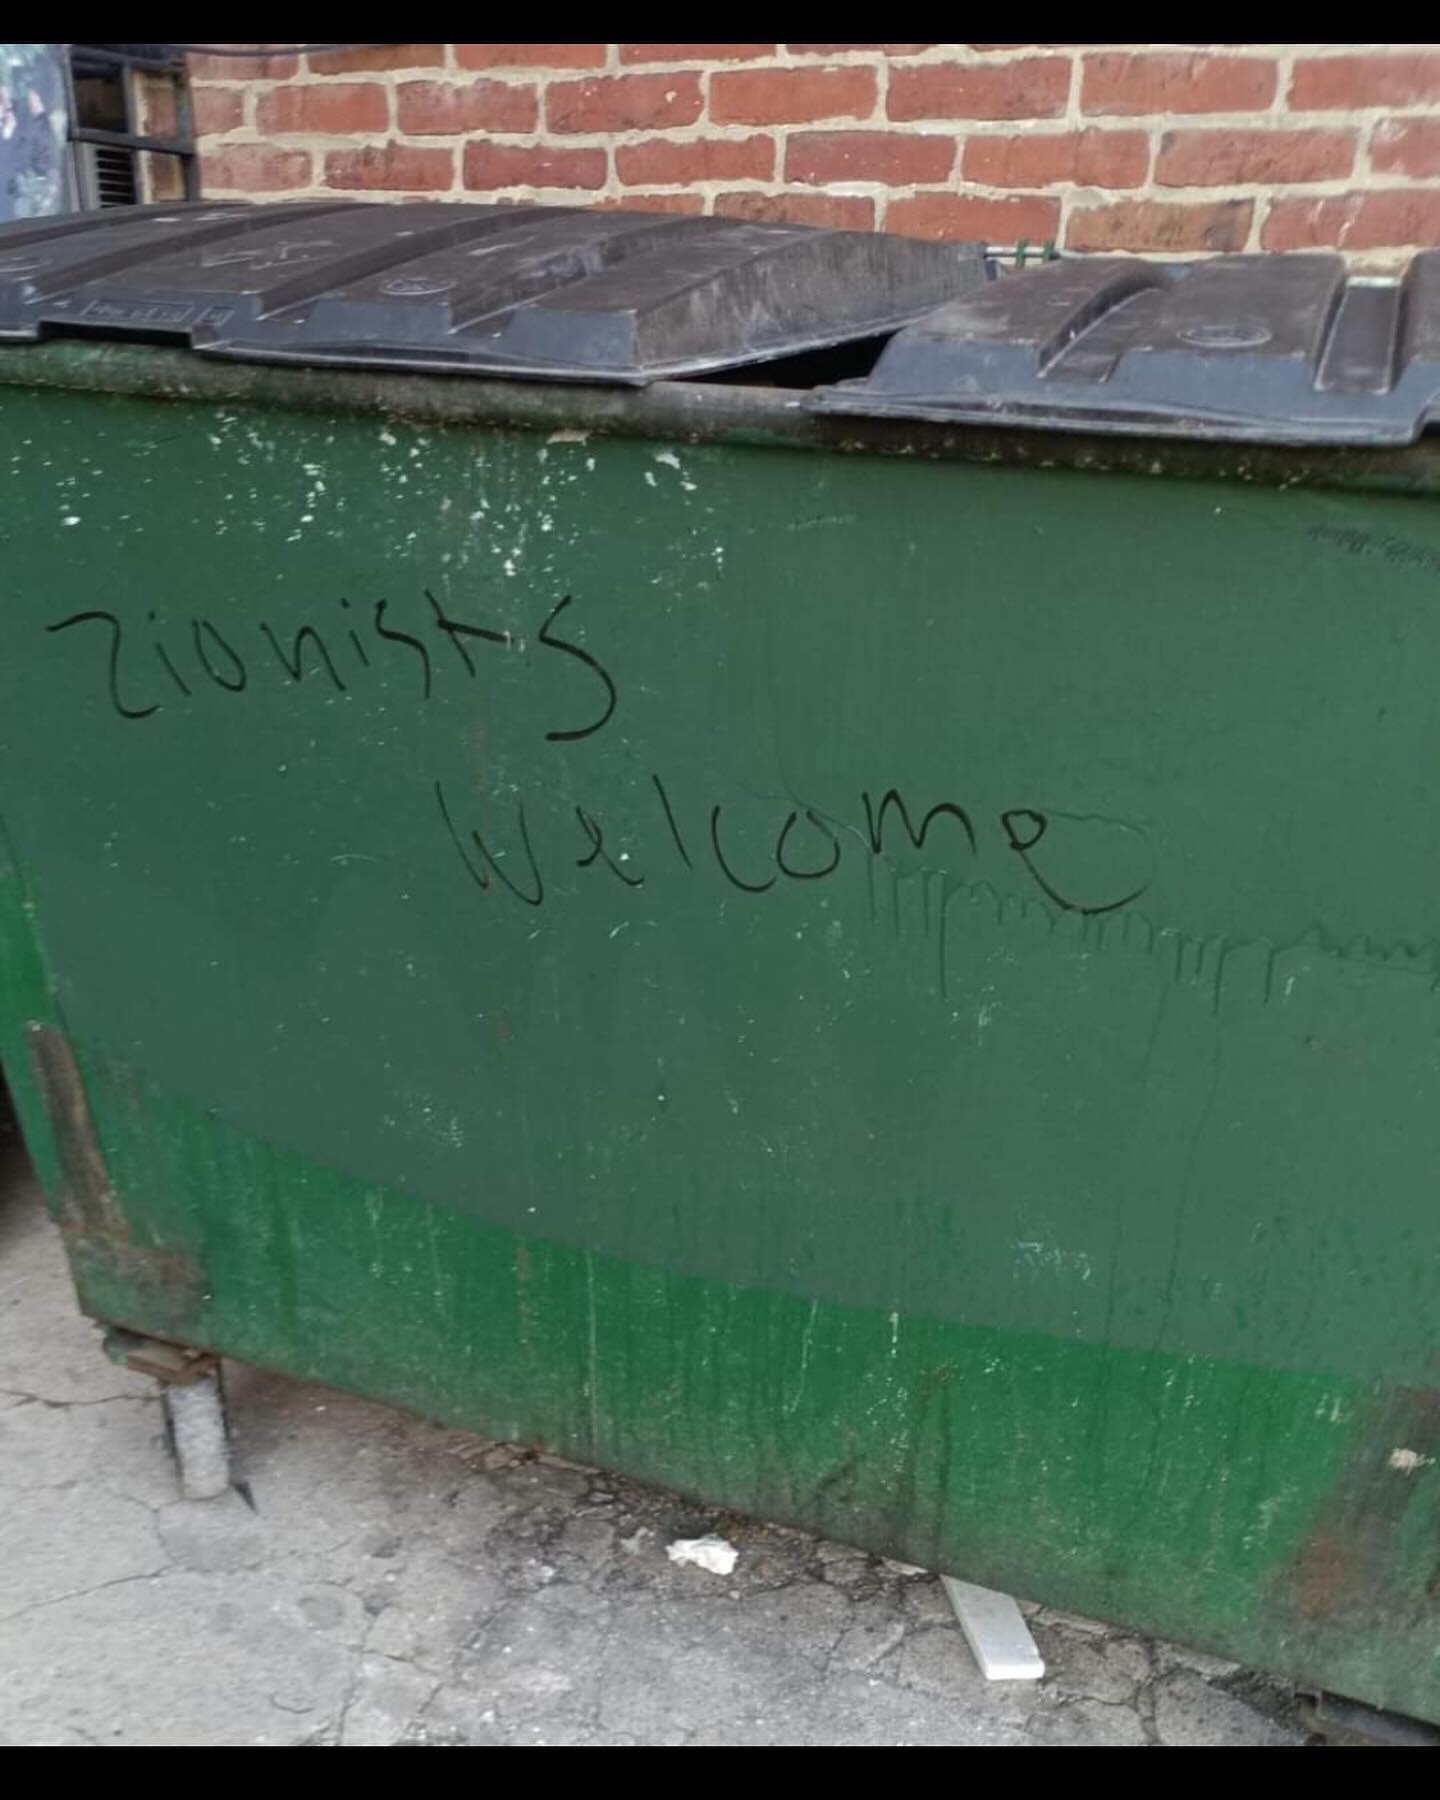 zionists
welcome